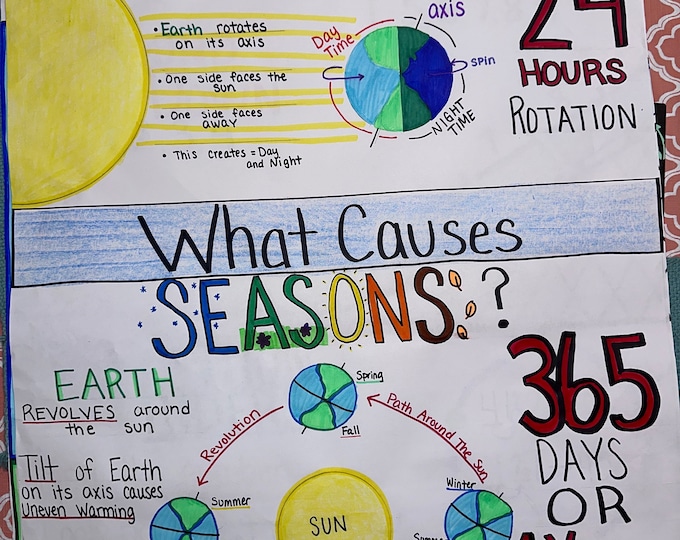 • Earth rotates
on its axis
• One side faces the
sun
• One side faces
away
• This creates = Day
and Night
Day
Time
axis
spin
NIGHT
TIME
24
HOURS
ROTATION
What Causes
SEASONS?
EARTH
REVOLVES around
the sun
Tilt of Earth
on its axis causes
Uneven Warming
Revolution
Spring
Fall
Path Around The Sun
Summer
Winter
SUN
365
DAYS
OR